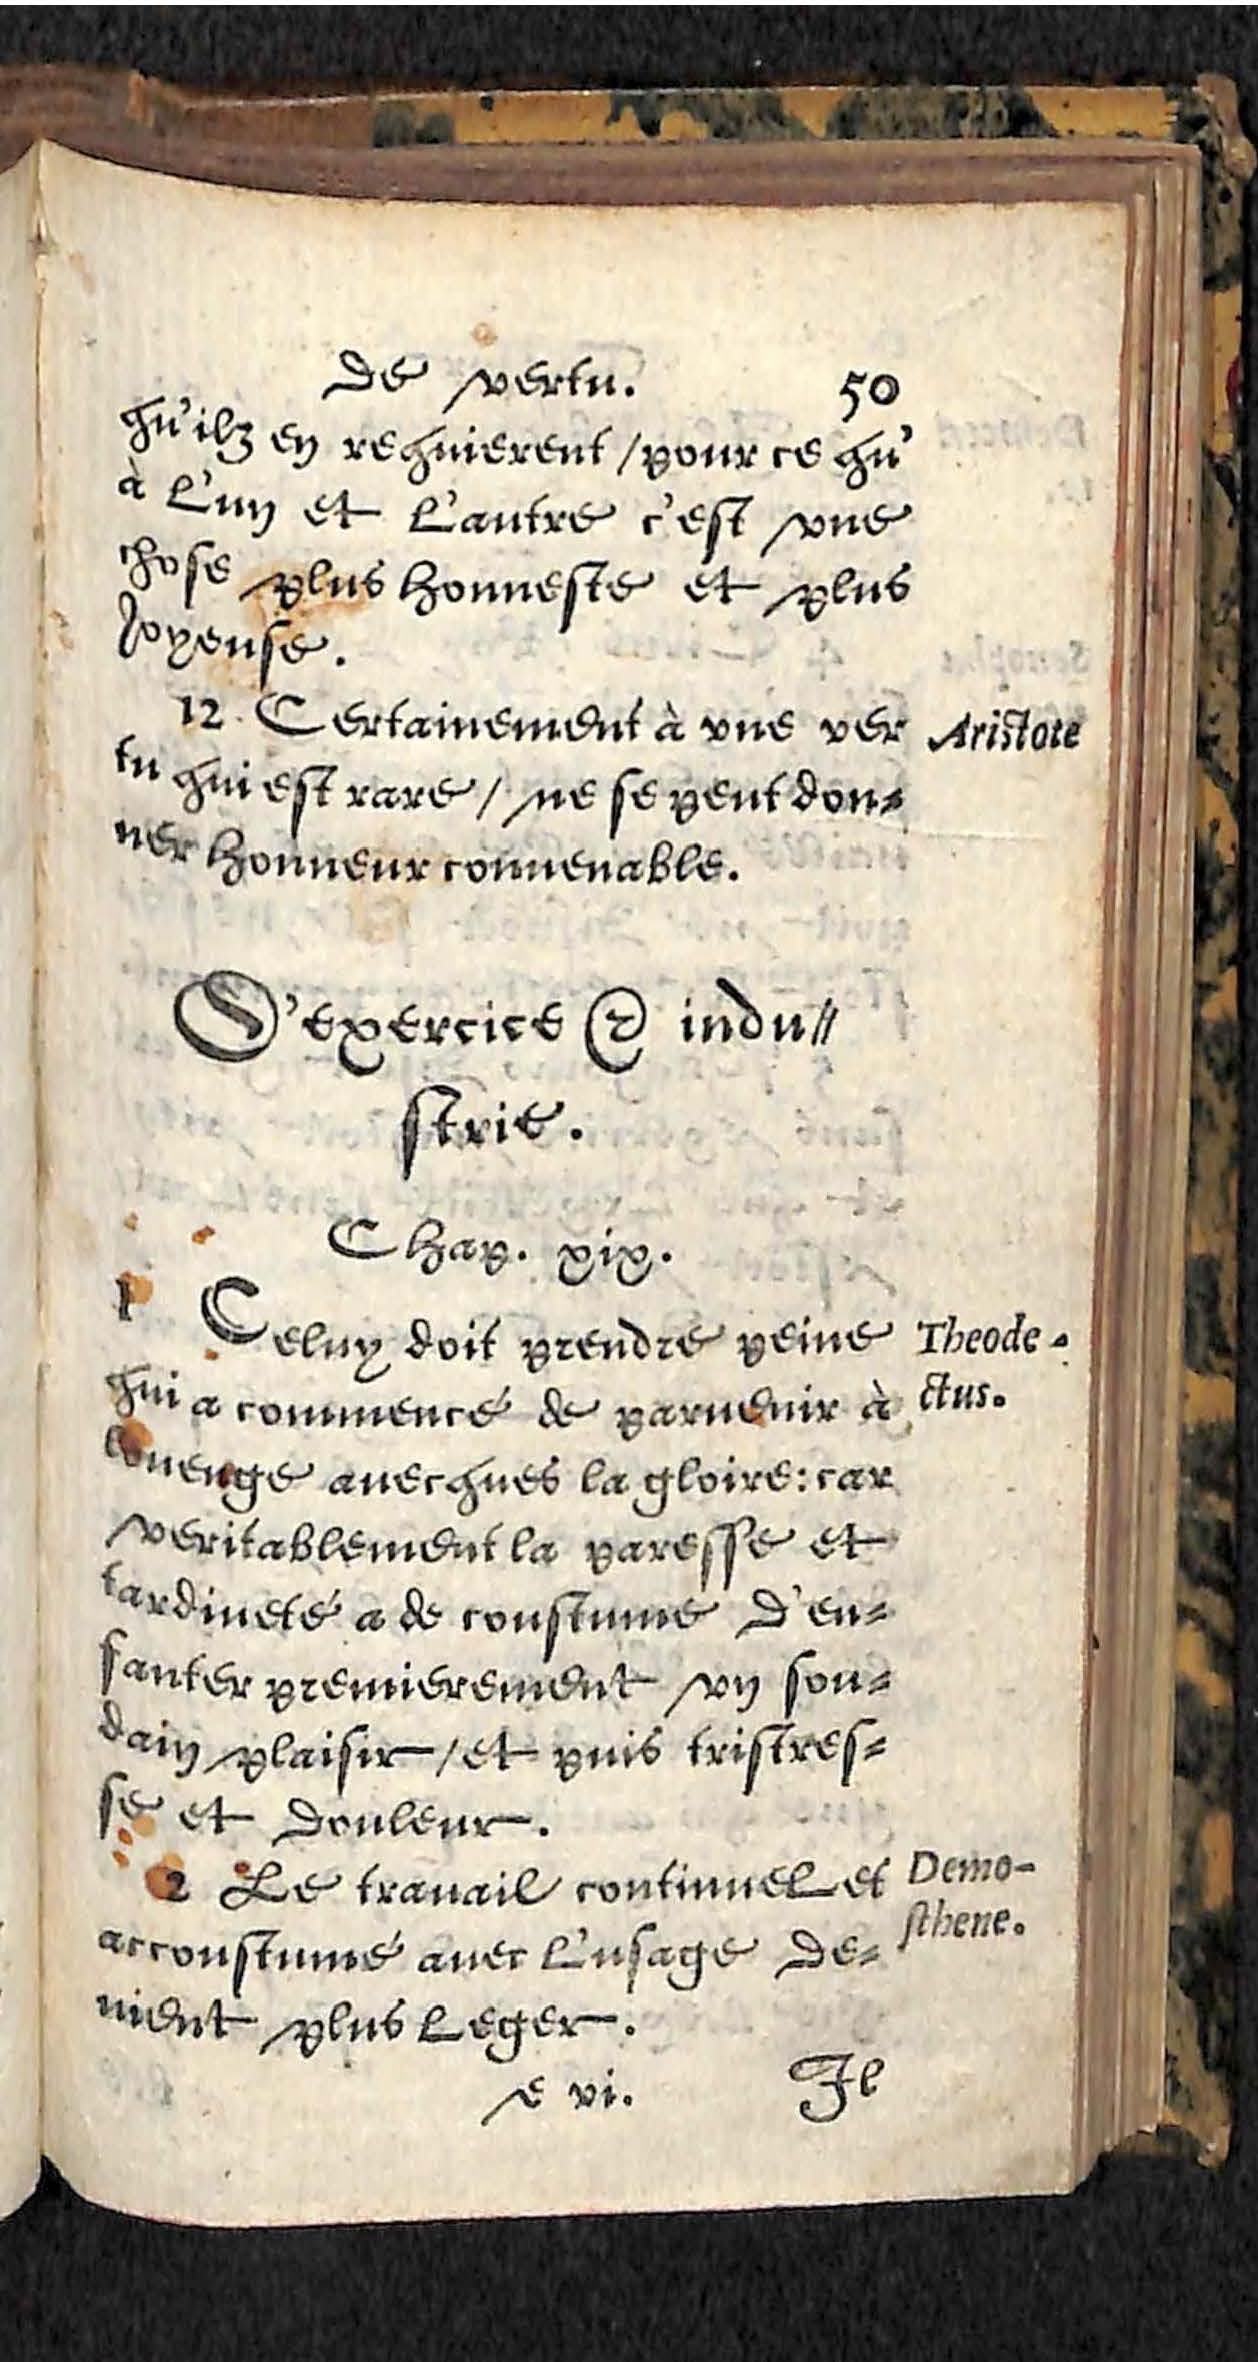 De vertu. 50
qu'ilz en requierent / pource qu'
à l'un et l'autre c'est vne
chose plus honneste et plus
Joyeuse.
12. Certainement à vne ver Aristote
tu qui est rare / ne se peut don-
ner honneur conuenable.
D'exercice & indu-
strie.
Chap. xix.
1 Celuy doit prendre peine Theode-
qui a commencé de paruenir à ctus.
louenge auecques la gloire: car
veritablement la paresse et
tardiueté a de coustume d'en-
fanter premierement vn sou-
dain plaisir / et puis tristres-
se et douleur.
2 Le trauail continuel et Demo-
accoustumé auec l'usage de- sthene.
uient plus leger.
e vi. Il